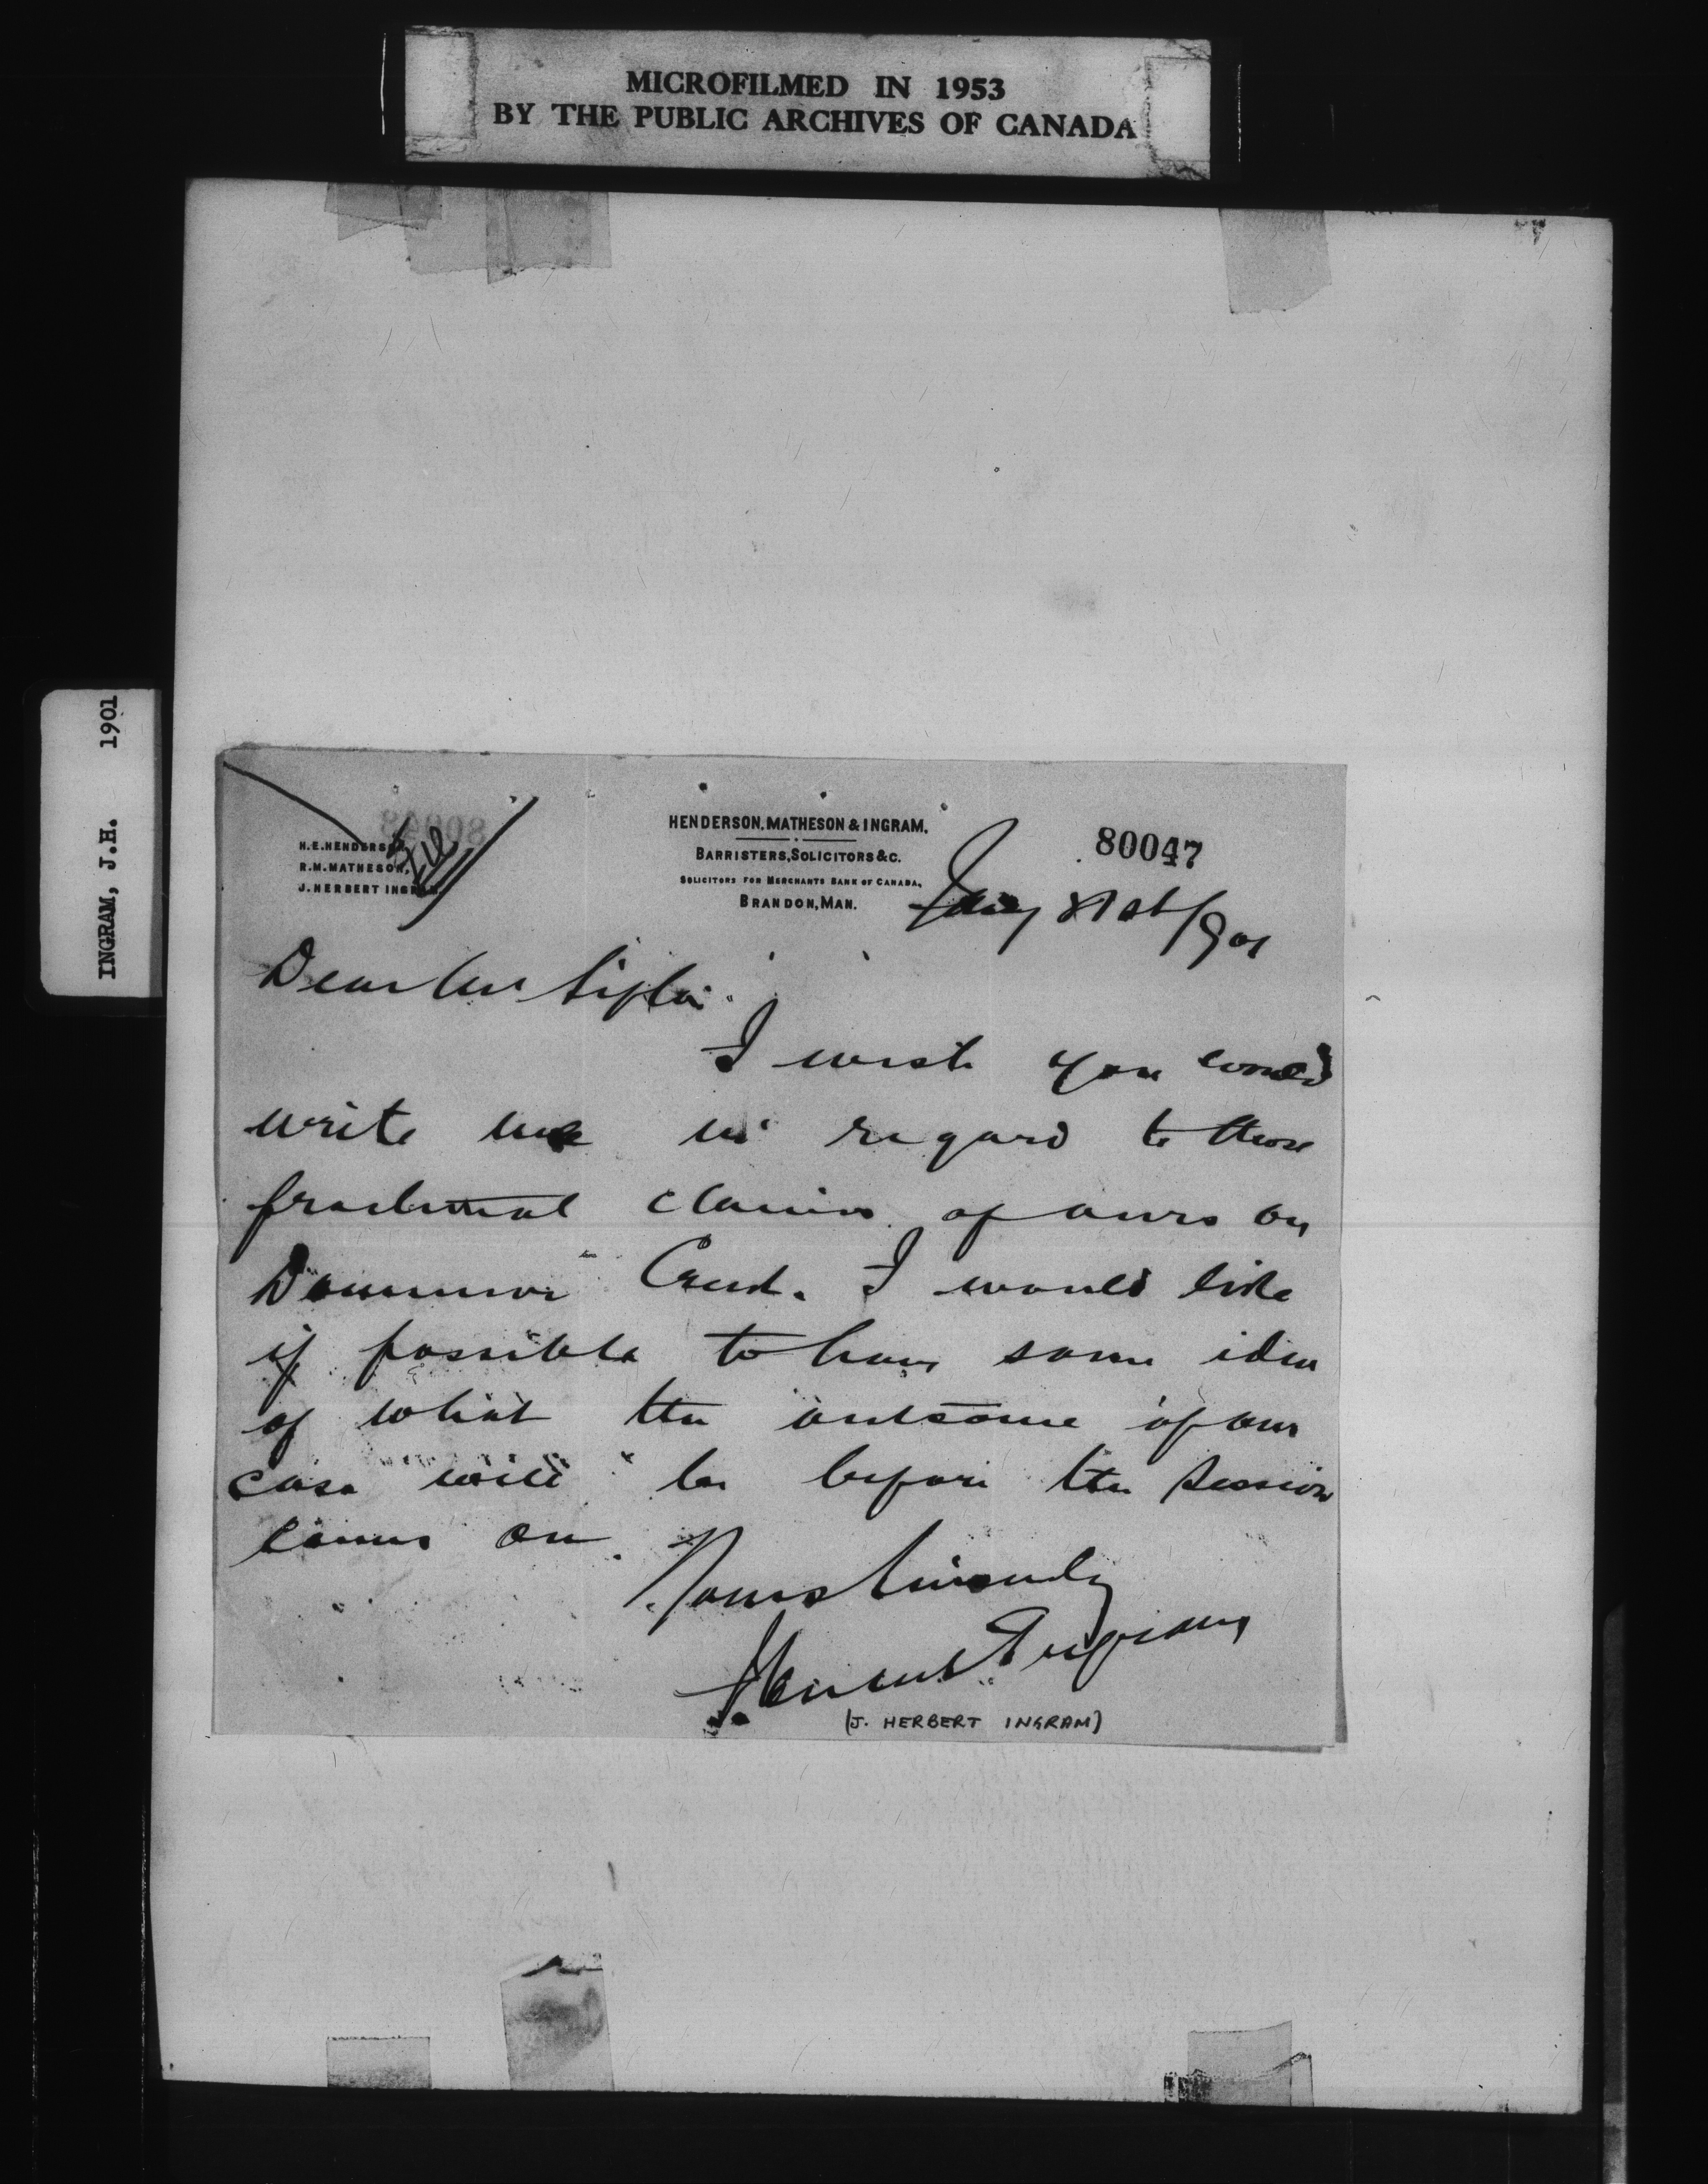 MICROFILMED IN 1953
BY THE PUBLIC ARCHIVES OF CANADA
INGRAM, J.H. 1901
H.E. HENDERSON,
R.M. MATHESON,
J. HERBERT INGRAM.
File
HENDERSON, MATHESON & INGRAM,
BARRISTERS, SOLICITORS &C.
SOLICITORS FOR MERCHANTS BANK OF CANADA,
BRANDON, MAN.
80047
Jany 21st/901
Dear Mr Sifton.
I wish you would
write me in regard to those
fractional claims of ours on
Dominion Creek. I would like
if possible to have some idea
of what the outcome of our
case will be before the Session
comes on.
Yours Sincerely
J. Herbert Ingram
(J. HERBERT INGRAM)